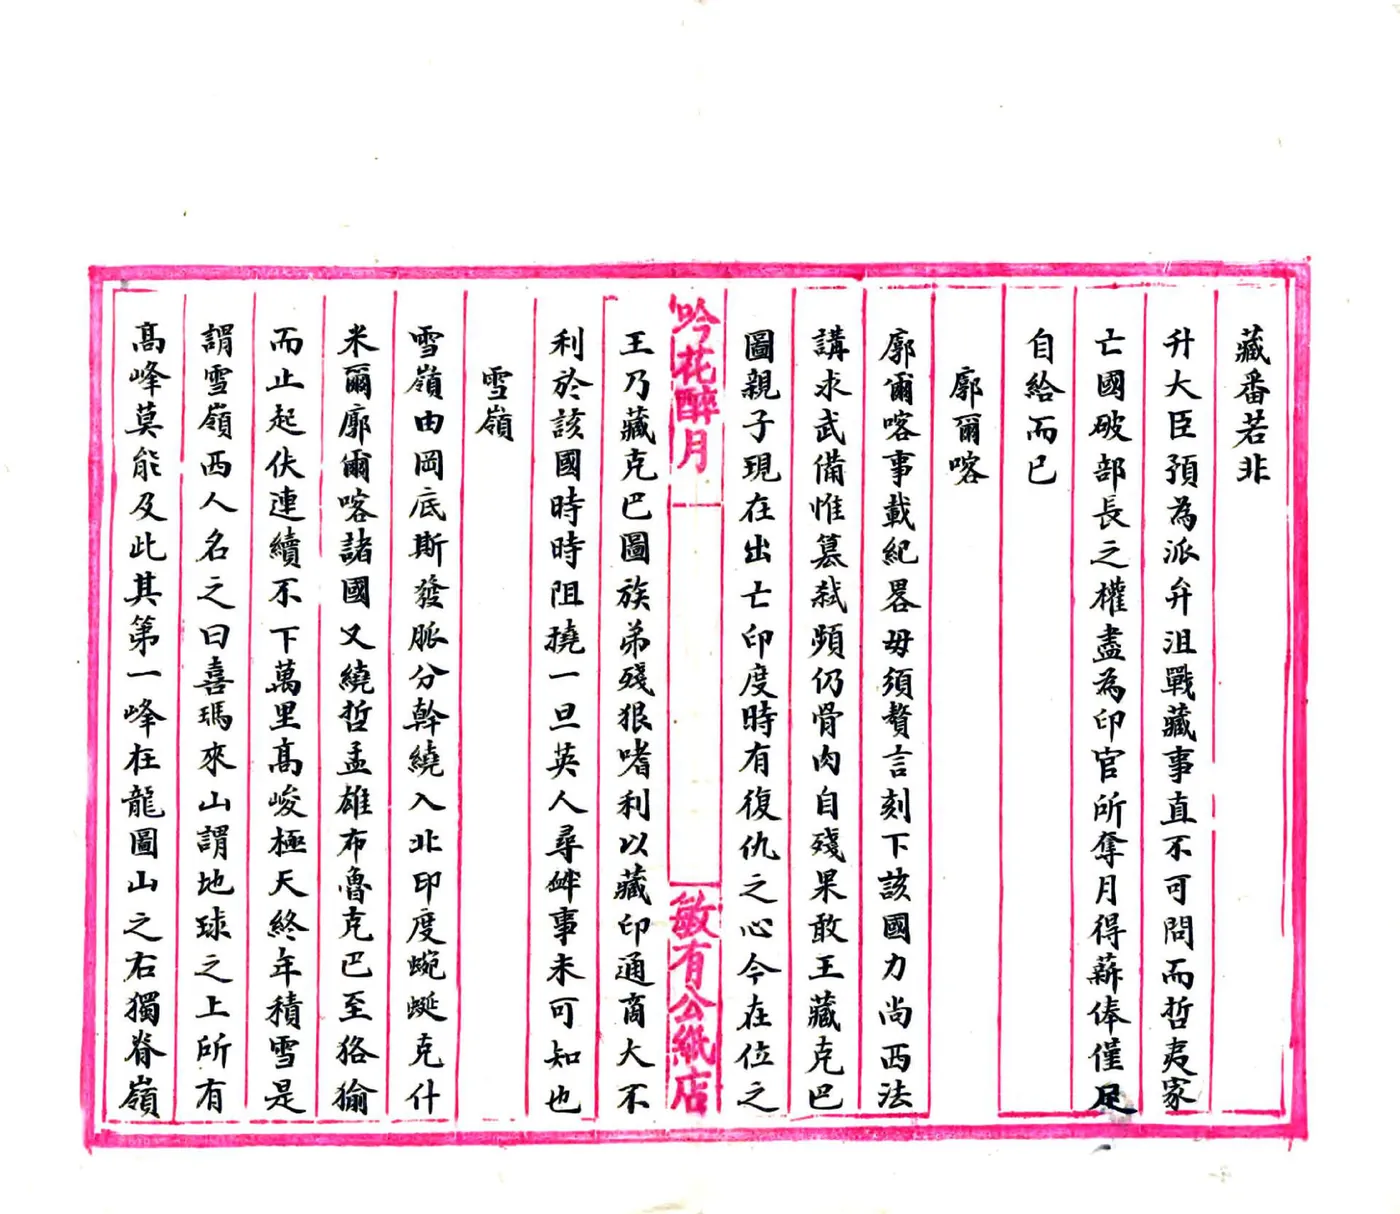 藏番若非
升大臣預為派弁沮戰藏事直不可問而哲夷家
亡國破部長之權盡為印官所奪月得薪俸僅足
自給而已
廓爾喀
廓爾喀事載紀畧毋須贅言刻下該國力尚西法
講求武備惟篡弒頻仍骨肉自殘果敢王藏克巴
圖親子現在出亡印度時有復仇之心今在位之
吟花醉月
敏有公紙店
王乃藏克巴圖族弟殘狠嗜利以藏印通商大不
利於該國時時阻撓一旦英人尋衅事未可知也
雪嶺
雪嶺由岡底斯發脈分幹繞入北印度蜿蜒克什
米爾廓爾喀諸國又繞哲孟雄布魯克巴至狢㺄
而止起伏連續不下萬里高峻極天終年積雪是
謂雪嶺西人名之曰喜瑪來山謂地球之上所有
高峰莫能及此其第一峰在龍圖山之右獨脊嶺